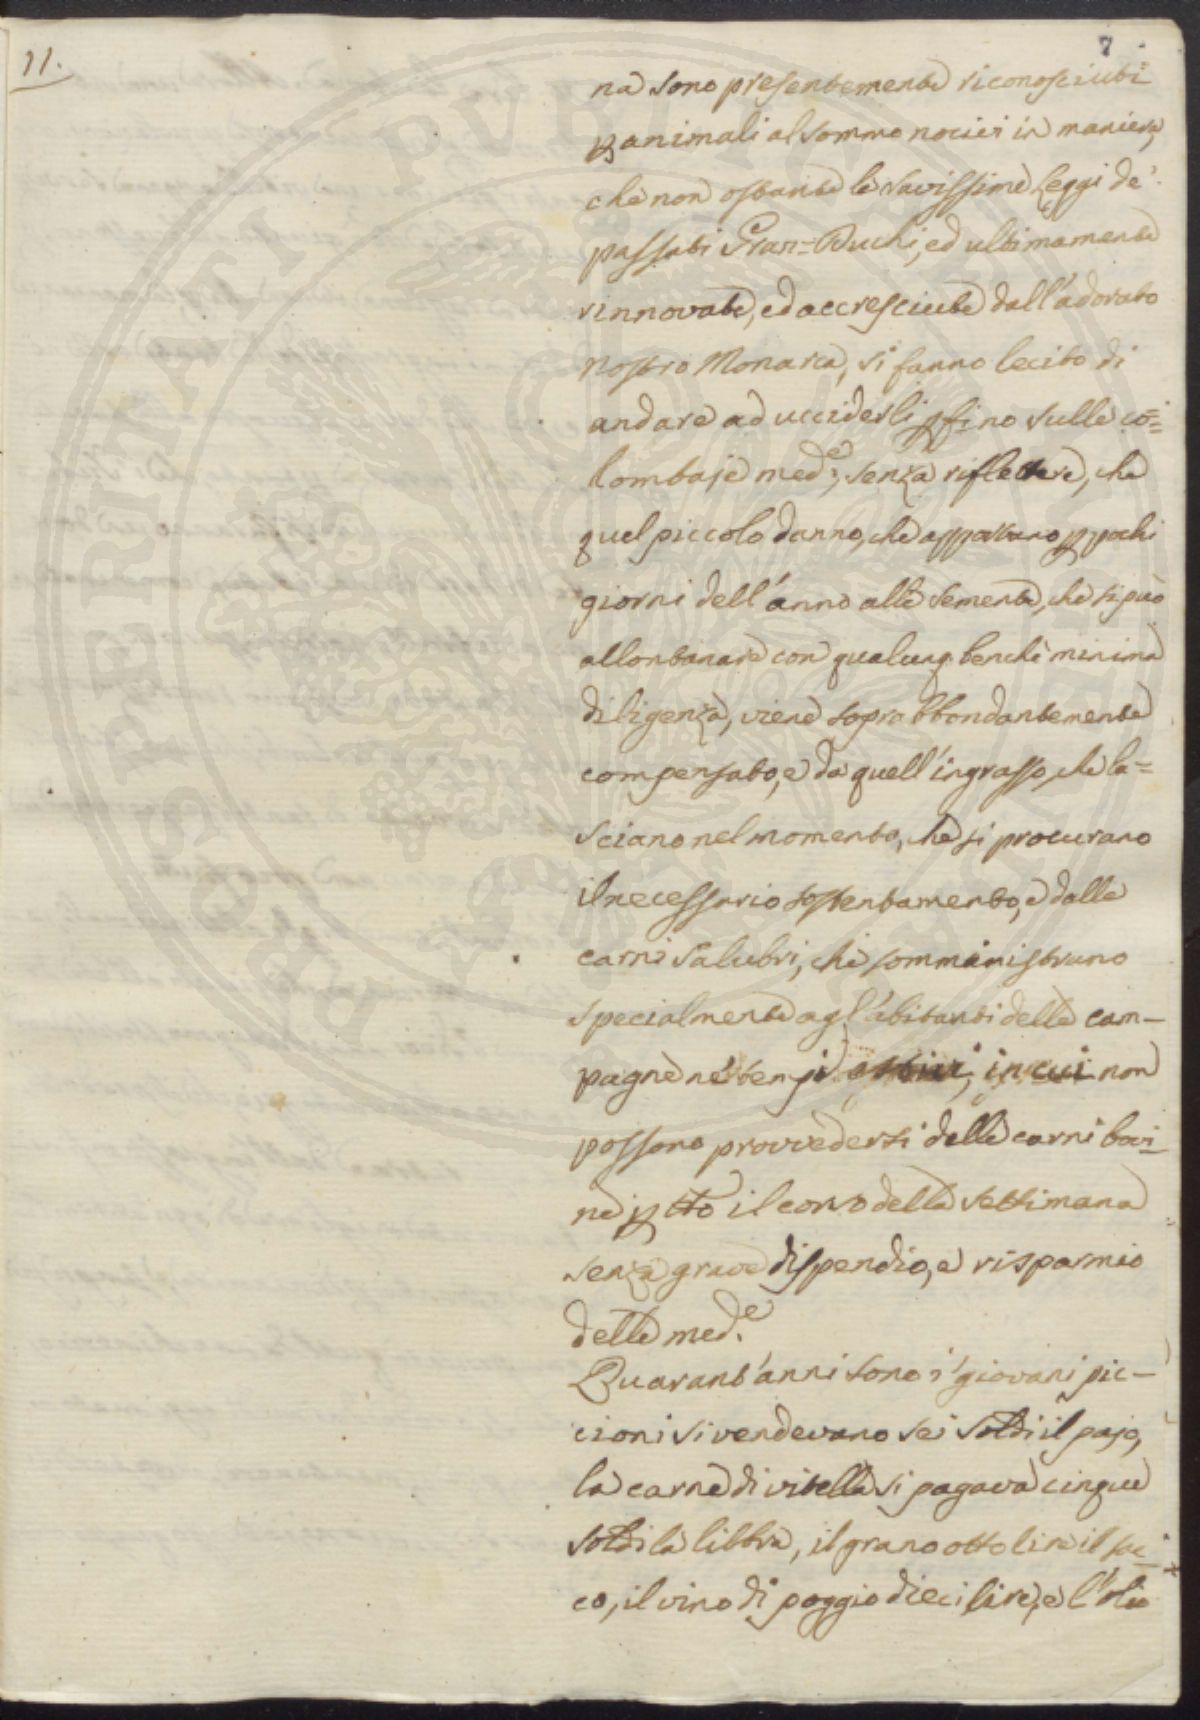 11.
7
na sono presentemente riconosciuti
p animali al sommo nocivi in maniera,
che non ostante le savissime Leggi de'
passati Gran=Duchi, ed ultimamente
rinnovate, ed accresciute dall'adorato
nostro Monarca, si fanno lecito di
andare ad ucciderli pfino sulle co=
lombaje med.e, senza riflettere, che
quel piccolo danno, che apportano p pochi
giorni dell'anno alle semente, che si può
allontanare con qualunq. benchè minima
diligenza, viene soprabbondantemente
compensato, e da quell'ingrasso, che la=
sciano nel momento, che si procurano
il necessario sostentamento, e dalle
carni salubri, che somministrano
specialmente agl'abitanti delle cam-
pagne ne' tempi estivi, in cui non
possono provvedersi delle carni bovi-
ne p tto il corso della settimana
senza grave dispendio, e risparmio
delle med.e
Quarant'anni sono i' giovani pic-
cioni si vendevano sei soldi il pajo,
la carne di vitella si pagava cinque
soldi la libbra, il grano otto lire il sac-
co, il vino di poggio dieci lire, e l'olio
PROSPERITATI PVBLICAE